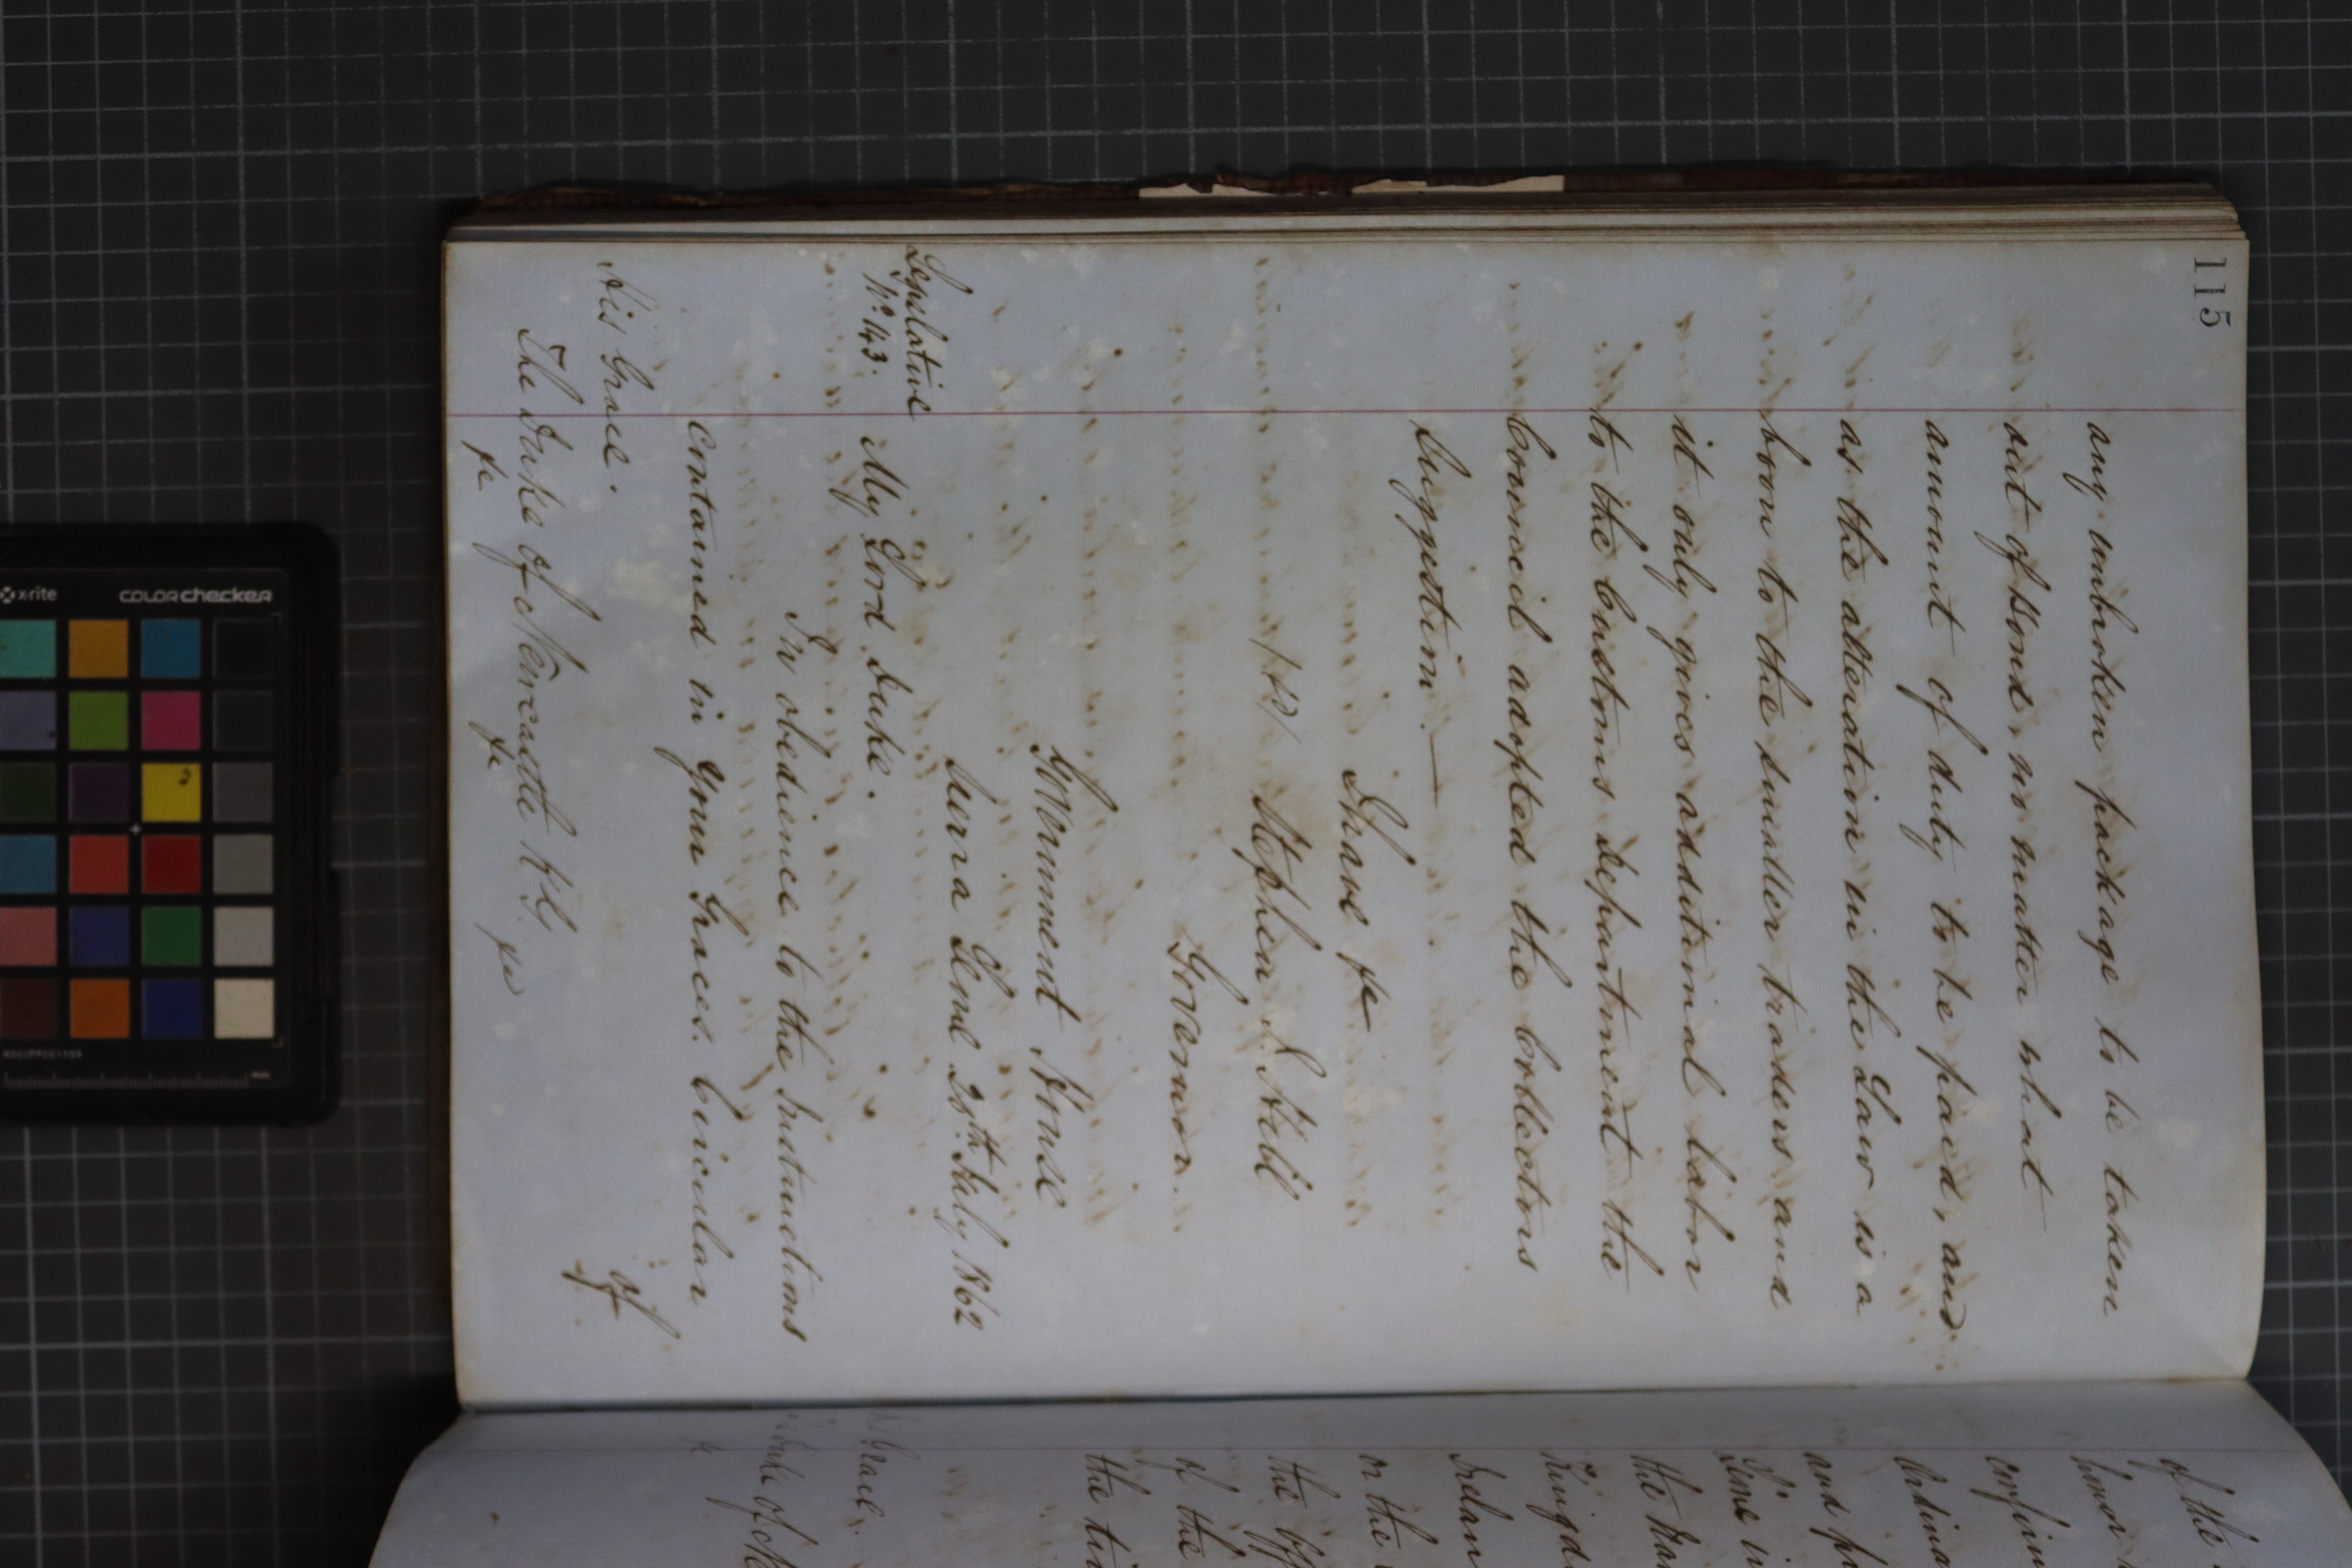 115
any unbroken package to be taken
out of Bond, no matter what
amount of duty to be paid, and
as the alteration in the Law is a
boon to the smaller traders and
it only gives additional labor
to the Customs Department the
Council adopted the Collectors
suggestion.—
I have &c
Stephen J. Hill
Governor.
Government House
Sierra Leone 20th July 1862
Legislative
No. 143.
My Lord Duke.
In obedience to the Instructions
contained in your Graces. Circular
of
His Grace.
The Duke of Newcastle K.G.
&c &c &c
of the
honor
confirm
Ordina
and p
the Ma
Kingd
Irelan
or the
the Off
of the
the ti
Grace.
Duke of Ne
x-rite colorchecker